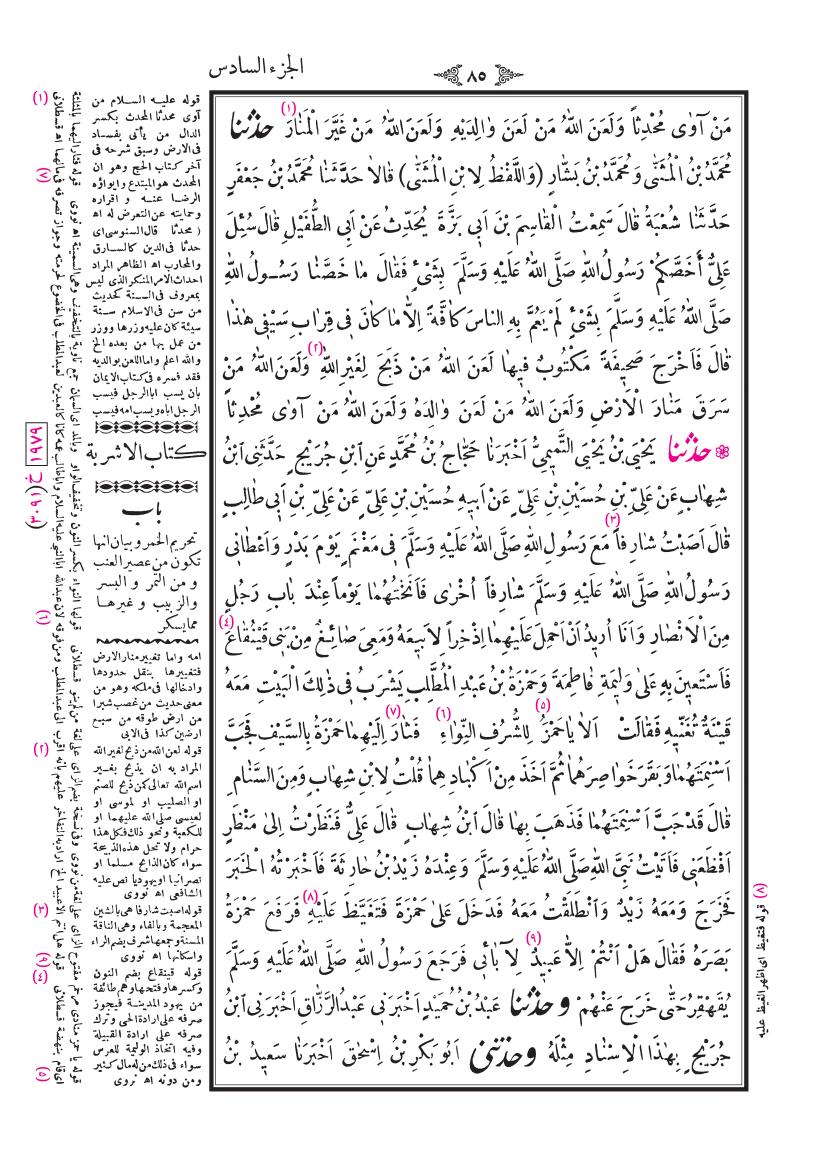 الجزء السادس
٨٥
مَنْ آوٰى مُحْدِثاً وَلَعَنَ اللهُ مَنْ لَعَنَ وَالِدَيْهِ وَلَعَنَ اللهُ مَنْ غَيَّرَ الْمَنَارَ (١) حدثنا
مُحَمَّدُ بْنُ الْمُثَنّٰى وَمُحَمَّدُ بْنُ بَشَّارٍ (وَاللَّفْظُ لِابْنِ الْمُثَنّٰى) قَالَا حَدَّثَنَا مُحَمَّدُ بْنُ جَعْفَرٍ
حَدَّثَنَا شُعْبَةُ قَالَ سَمِعْتُ الْقَاسِمَ بْنَ اَبِى بَزَّةَ يُحَدِّثُ عَنْ اَبِى الطُّفَيْلِ قَالَ سُئِلَ
عَلِىٌّ أَخَصَّكُمْ رَسُولُ اللهِ صَلَّى اللهُ عَلَيْهِ وَسَلَّمَ بِشَىْءٍ فَقَالَ مَا خَصَّنَا رَسُولُ اللهِ
صَلَّى اللهُ عَلَيْهِ وَسَلَّمَ بِشَىْءٍ لَمْ يَعُمَّ بِهِ النَّاسَ كَافَّةً اِلَّا مَا كَانَ فِى قِرَابِ سَيْفِى هٰذَا
قَالَ فَاَخْرَجَ صَحِيفَةً مَكْتُوبٌ فِيهَا لَعَنَ اللهُ مَنْ ذَبَحَ لِغَيْرِ اللهِ (٢) وَلَعَنَ اللهُ مَنْ
سَرَقَ مَنَارَ الْاَرْضِ وَلَعَنَ اللهُ مَنْ لَعَنَ وَالِدَهُ وَلَعَنَ اللهُ مَنْ آوٰى مُحْدِثاً
حدثنا يَحْيَى بْنُ يَحْيَى التَّمِيمِىُّ اَخْبَرَنَا حَجَّاجُ بْنُ مُحَمَّدٍ عَنِ ابْنِ جُرَيْجٍ حَدَّثَنِى ابْنُ
شِهَابٍ عَنْ عَلِىِّ بْنِ حُسَيْنِ بْنِ عَلِىٍّ عَنْ اَبِيهِ حُسَيْنِ بْنِ عَلِىٍّ عَنْ عَلِىِّ بْنِ اَبِى طَالِبٍ
قَالَ اَصَبْتُ شَارِفاً (٣) مَعَ رَسُولِ اللهِ صَلَّى اللهُ عَلَيْهِ وَسَلَّمَ فِى مَغْنَمٍ يَوْمَ بَدْرٍ وَاَعْطَانِى
رَسُولُ اللهِ صَلَّى اللهُ عَلَيْهِ وَسَلَّمَ شَارِفاً اُخْرٰى فَاَنَخْتُهُمَا يَوْماً عِنْدَ بَابِ رَجُلٍ
مِنَ الْاَنْصَارِ وَاَنَا اُرِيدُ اَنْ اَحْمِلَ عَلَيْهِمَا اِذْخِراً لِاَبِيعَهُ وَمَعِىَ صَائِغٌ مِنْ بَنِى قَيْنُقَاعَ (٤)
فَاَسْتَعِينَ بِهِ عَلٰى وَلِيمَةِ فَاطِمَةَ وَحَمْزَةُ بْنُ عَبْدِ الْمُطَّلِبِ يَشْرَبُ فِى ذٰلِكَ الْبَيْتِ مَعَهُ
قَيْنَةٌ تُغَنِّيهِ فَقَالَتْ اَلَا يَا حَمْزُ (٥) لِلشُّرُفِ النِّوَاءِ (٦) فَثَارَ (٧) اِلَيْهِمَا حَمْزَةُ بِالسَّيْفِ فَجَبَّ
اَسْنِمَتَهُمَا وَبَقَرَ خَوَاصِرَهُمَا ثُمَّ اَخَذَ مِنْ اَكْبَادِهِمَا قُلْتُ لِابْنِ شِهَابٍ وَمِنَ السَّنَامِ
قَالَ قَدْ جَبَّ اَسْنِمَتَهُمَا فَذَهَبَ بِهَا قَالَ ابْنُ شِهَابٍ قَالَ عَلِىٌّ فَنَظَرْتُ اِلٰى مَنْظَرٍ
اَفْظَعَنِى فَاَتَيْتُ نَبِىَّ اللهِ صَلَّى اللهُ عَلَيْهِ وَسَلَّمَ وَعِنْدَهُ زَيْدُ بْنُ حَارِثَةَ فَاَخْبَرْتُهُ الْخَبَرَ
فَخَرَجَ وَمَعَهُ زَيْدٌ وَانْطَلَقْتُ مَعَهُ فَدَخَلَ عَلٰى حَمْزَةَ فَتَغَيَّظَ عَلَيْهِ (٨) فَرَفَعَ حَمْزَةُ
بَصَرَهُ فَقَالَ هَلْ اَنْتُمْ اِلَّا عَبِيدٌ (٩) لِآبَائِى فَرَجَعَ رَسُولُ اللهِ صَلَّى اللهُ عَلَيْهِ وَسَلَّمَ
يُقَهْقِرُ حَتّٰى خَرَجَ عَنْهُمْ وحدثنا عَبْدُ بْنُ حُمَيْدٍ اَخْبَرَنِى عَبْدُ الرَّزَّاقِ اَخْبَرَنِى ابْنُ
جُرَيْجٍ بِهٰذَا الْاِسْنَادِ مِثْلَهُ وحدثنى اَبُو بَكْرِ بْنُ اِسْحٰقَ اَخْبَرَنَا سَعِيدُ بْنُ
(١) قوله عليه السلام من
آوى محدثا المحدث بكسر
الدال من يأتى بفساد
فى الارض وسبق شرحه فى
آخر كتاب الحج وهو ان
المحدث هو المبتدع وايواؤه
الرضا عنه و اقراره
وحمايته عن التعرض له اه
(محدثا) قال السنوسى اى
حدثا فى الدين كالسارق
والمحارب اه الظاهر المراد
احداث الامر المنكر الذى ليس
بمعروف فى السنة كحديث
من سن فى الاسلام سنة
سيئة كان عليه وزرها ووزر
من عمل بها من بعده الخ
والله اعلم واما اللعن بوالديه
فقد فسره فى كتاب الايمان
بان يسب ابا الرجل فيسب
الرجل اباه ويسب امه فيسب
كتاب الاشربة
باب
تحريم الخمر وبيان انها
تكون من عصير العنب
و من التمر و البسر
والزبيب و غيرها
مما يسكر
امه واما تغيير منار الارض
فتغييرها بنقل حدودها
وادخالها فى ملكه وهو من
معنى حديث من غصب شبرا
من ارض طوقه من سبع
ارضين كذا فى الابى
(٢) قوله لعن الله من ذبح لغير الله
المراد به ان يذبح بغير
اسم الله تعالى كمن ذبح للصنم
او الصليب او لموسى او
لعيسى صلى الله عليهما او
للكعبة ونحو ذلك فكل هذا
حرام ولا تحل هذه الذبيحة
سواء كان الذابح مسلما او
نصرانيا او يهوديا نص عليه
الشافعى اه نووى
(٣) قوله اصبت شارفا هى بالشين
المعجمة وبالفاء وهى الناقة
المسنة وجمعها شرف بضم الراء
واسكانها اه نووى
(٤) قوله قينقاع بضم النون
وكسرها وفتحها وهم طائفة
من يهود المدينة فيجوز
صرفه على ارادة الحى وترك
صرفه على ارادة القبيلة
وفيه اتخاذ الوليمة للعرس
سواء فى ذلك من له مال كثير
ومن دونه اه نووى
(٨) قوله فتغيظ اى اظهر الغيظ عليه
١٩٧٩